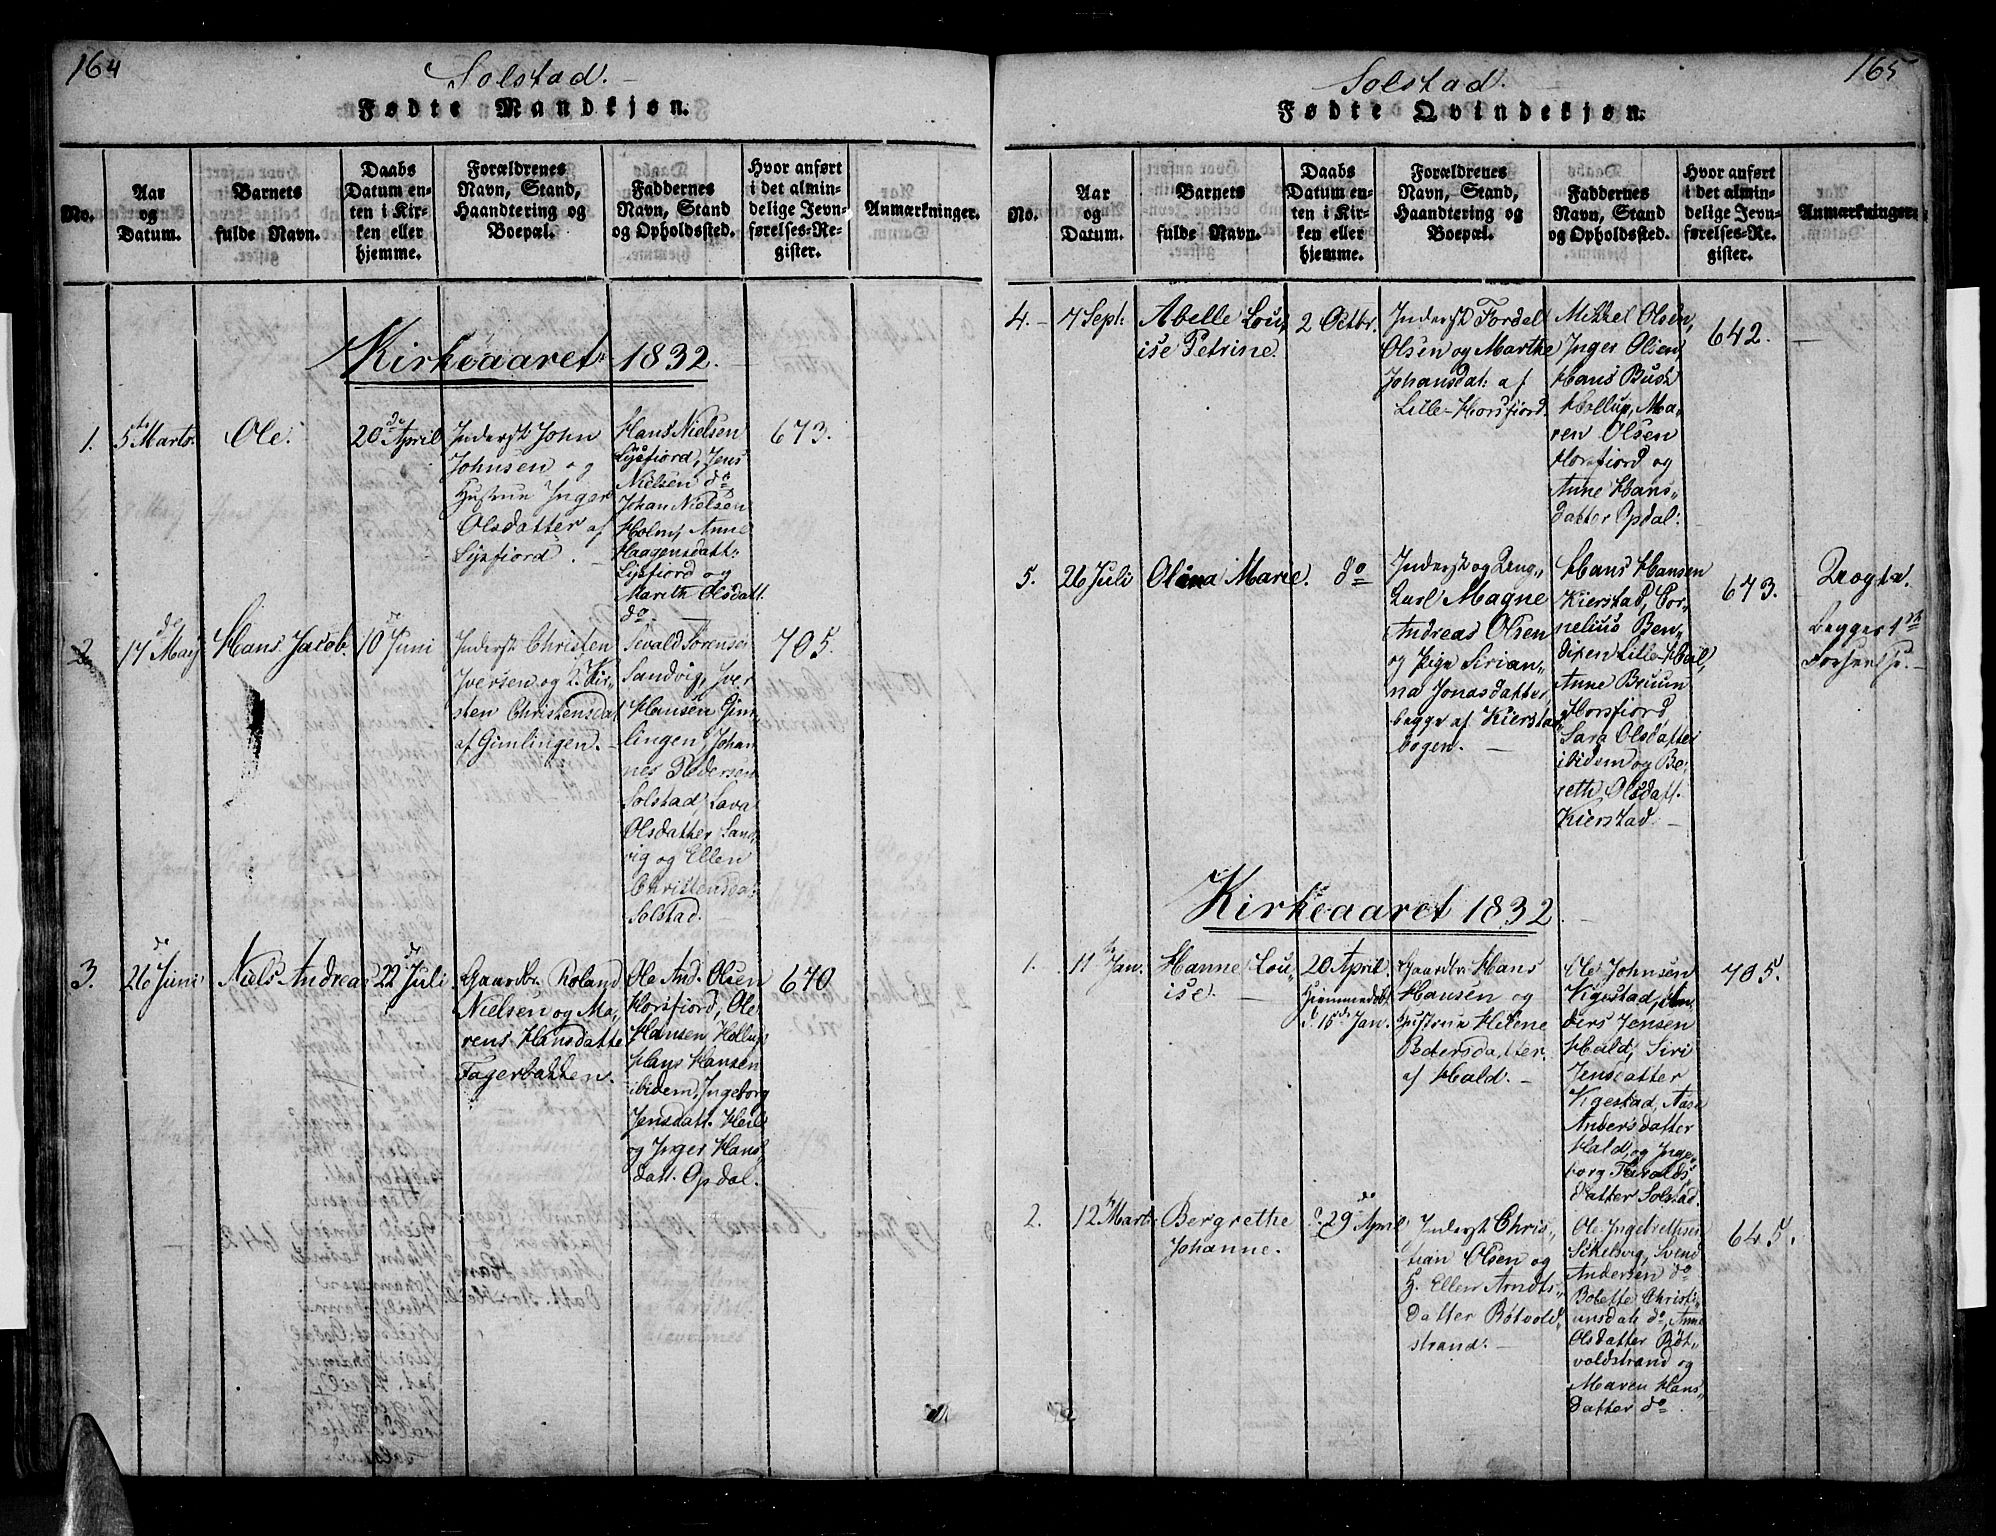 164
Solstad.
Fødte Mandkjøn.
No.
Aar
og
Datum.
Barnets
fulde Navn.
Daabs
Datum en-
ten i Kir-
ken eller
hjemme.
Forældrenes
Navn, Stand,
Haandtering og
Boepæl.
Faddernes
Navn, Stand
og Opholdssted.
Hvor anført
i det almin-
delige Jevn-
førelses-Re-
gister.
Anmærkninger.
Kirkeaaret 1832.
1.
5te Marts.
Ole.
20de April
Inderst: John
Johnsen og
Hustrue Inger
Olsdatter af
Lysfiord.
Hans Nielsen
Lysfiord, Jens
Nielsen do
Johan Nielsen
Holm, Anne
Haagensdatt:
Lysfiord og
Marith Olsdatt.
do.
673.
2.
17de May
Hans Jacob.
10de Juni
Inderst Christen
Iversen og K. Kir-
sten Christensdat
af Gimlingen.
Sivald Sørensen
Sandvig, Iver
Hansen Gim-
lingen, Johan-
nes Pedersen
Solstad, Lava
Olsdatter Sand-
vig og Ellen
Christensdat:
Solstad.
705.
3.
26de Juni
Niels Andreas
22de Juli
Gaardbr. Roland
Nielsen og Ma-
rens Hansdatte
Fagerbakken.
Ole And. Olsen
Horsfiord, Ole
Hansen Hollup
Hans Hansen
ibidem, Ingeborg
Jensdatt. Heil
og Inger Hans-
datt. Opdal.
670
165
Solstad.
Fødte Qvindekjøn.
No.
Aar
og
Datum.
Barnets
fulde Navn.
Daabs
Datum en-
ten i Kir-
ken eller
hjemme.
Forældrenes
Navn, Stand,
Haandtering og
Boepæl.
Faddernes
Navn, Stand
og Opholdssted.
Hvor anført
i det almin-
delige Jevn-
førelses-Re-
gister.
Anmærkninger.
4.
7 Sept:
Abelle Lou-
ise Petrine.
2 Octbr.
Inderst Fordel
Olsen og Marthe
Johansdat: af
Lille-Horsfiord.
Mikkel Olsen,
Inger Olsen,
Hans Busk
Hollup, Ma-
ren Olsen
Horsfiord og
Anne Hans-
datter Opdal.
642.
5.
26 Juli
Olina Marie.
do
Inderst og Ung-
karl Magne
Andreas Olsen
og Pige Sirian-
na Jonasdatter
begge af Kierstad
bogen.
Hans Hansen
Kierstad, Cor-
nelius Ben-
dixen Lille-Heil,
Anne Bruun
Horsfiord
Sara Olsdatter
ibidem og Be-
reth Olsdatt.
Kierstad.
673.
Uægte.
begges 1ste
Forseelse.
Kirkeaaret 1832
1.
11te Jan.
Hanne Lou-
ise.
20 April.
Hjemmedøbt
d. 15de Jan.
Gaardbr. Hans
Hansen og
Hustrue Helene
Pedersdatter
af Hald.
Ole Johnsen
Vigestad, An-
ders Jensen
Hald, Siri
Jensdatter
Vigestad, Aase
Andersdatter
Hald, og Inge-
borg
datter Solstad.
705.
2.
12te Marts
Bergrethe
Johanne.
d. 29de April
Inderst Chris-
tian Olsen og
H. Ellen Arndts-
datter Røtvold
strand.
Ole Ingebrethsen
Svend
Andersen do
Bolette Christi-
ansdatt do, Anne
Olsdatter Røt-
voldstrand og
Maren Hans-
datter do
645.